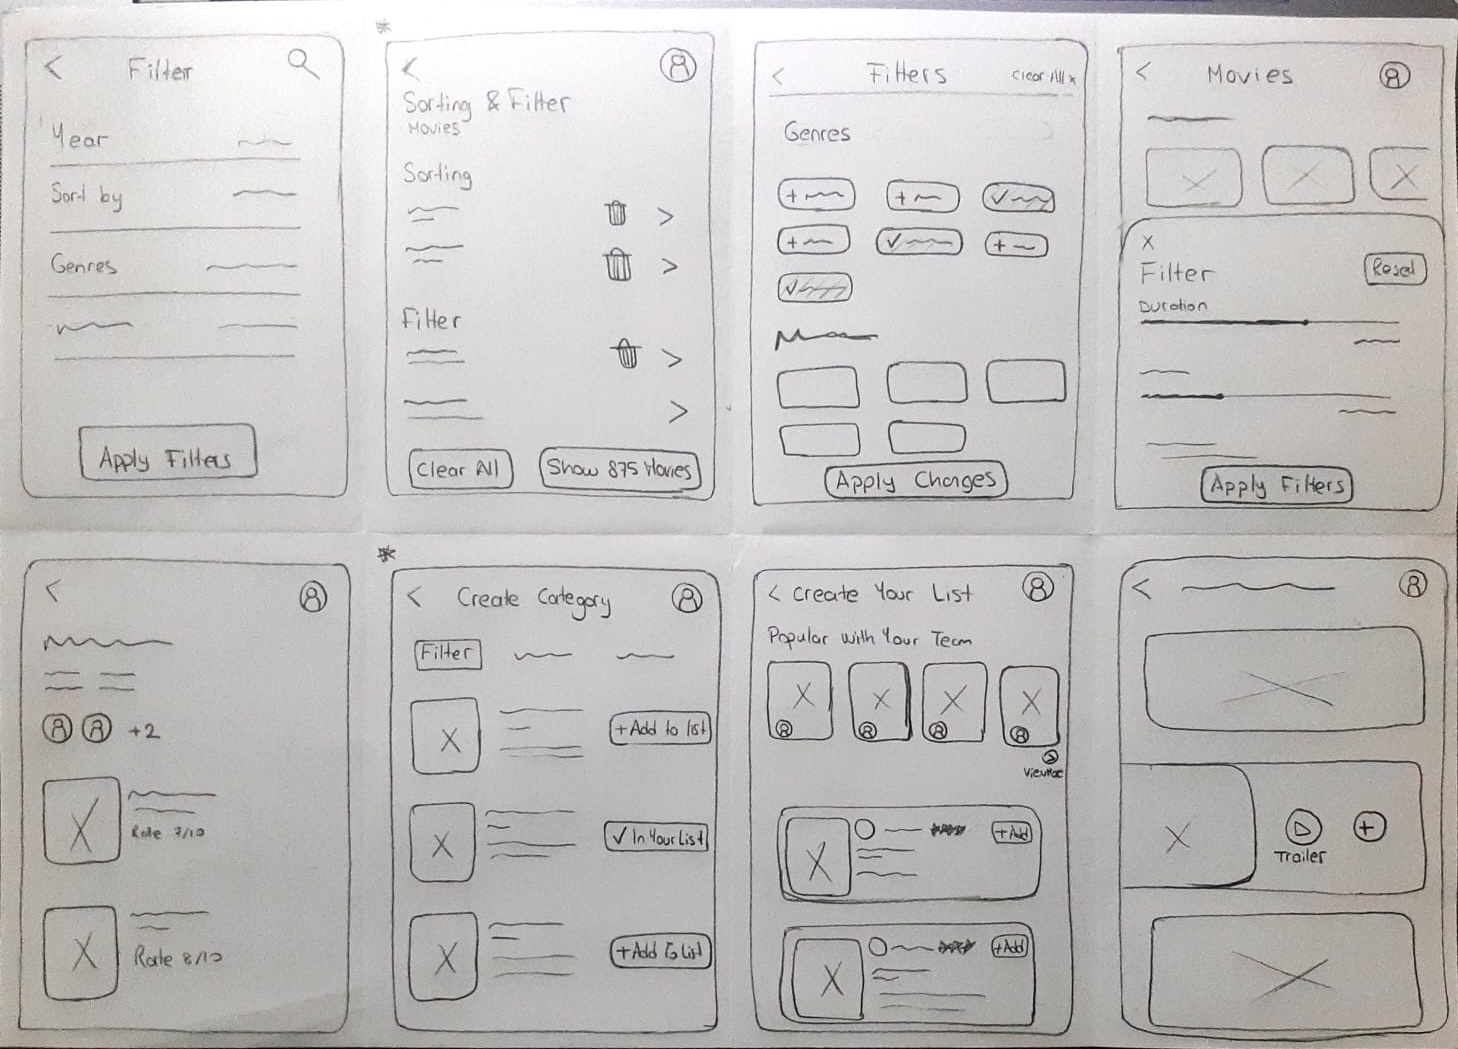 Filter
Year
Sort by
Genres
Apply Filters
Sorting & Filter
Movies
Sorting
Filter
Clear All
Show 875 Movies
Filters
Clear All x
Genres
+
+
✓
+
✓
+
✓
Apply Changes
Movies
X
Filter
Reset
Duration
Apply Filters
+2
Rate 7/10
Rate 8/10
Create Category
Filter
+ Add to list
✓ In Your List
+ Add To List
Create Your List
Popular With Your Team
View More
+ Add
+ Add
Trailer
+